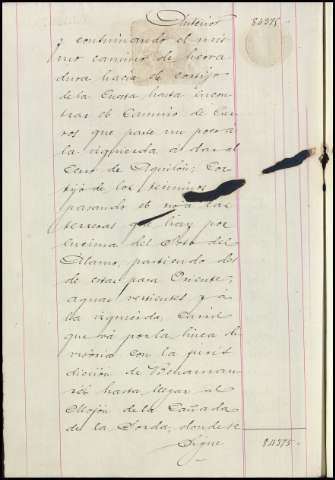 Anterior 84375.-
y continuando el mis
mo camino de herra
dura hacia el cortijo
de la Cuesta hasta encon
trar el Camino de Car
ros que parte un poco a
la izquierda al dar al
Cerro de Aguilón; Cor
tijo de los terminos
pasando el rio á las
terreras que hay por
encima del Soto del
Alamo, partiendo des
de estas para Oriente,
aguas vertientes y á
la izquierda,
que vá por la linea di
visoria con la juris
dicción de
hasta llegar al
Mojón de la Cañada
de la Sorda, donde se
Sigue 84375.-